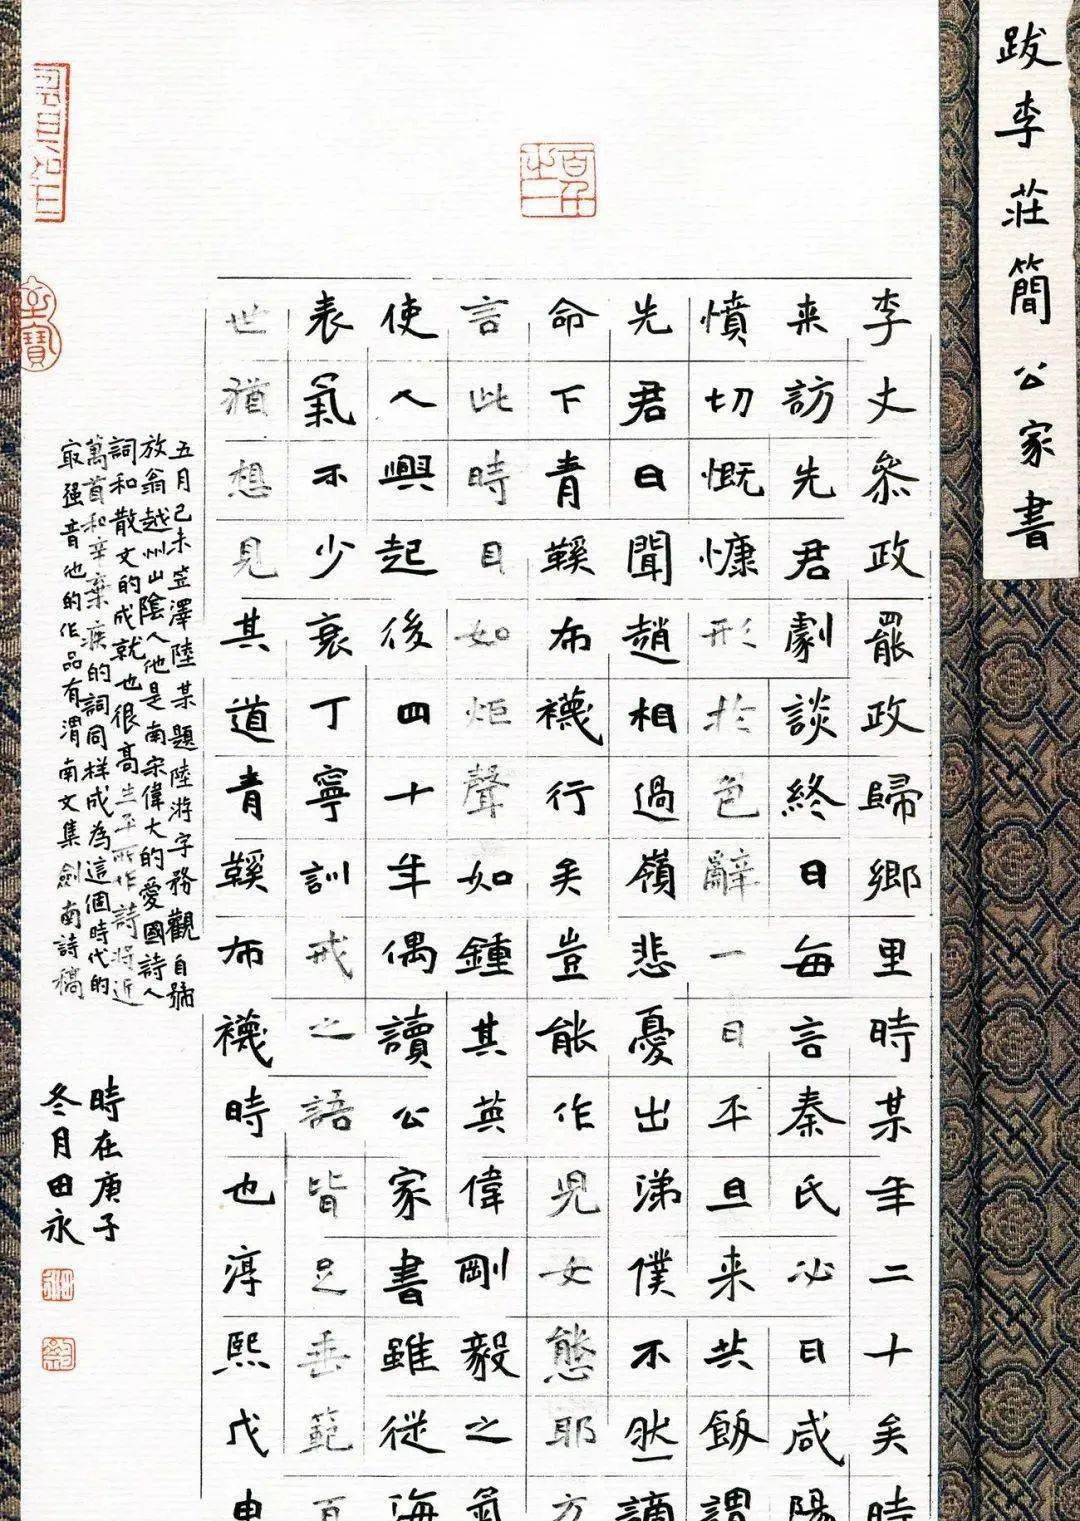 跋李莊簡公家書
李丈叅政罷政歸鄉里時某年二十矣時
来訪先君劇談終日每言秦氏必曰咸陽
憤切慨慷形於色辭一日平旦来共飯謂
先君曰聞趙相過嶺悲憂出涕僕不然謫
命下青鞵布襪行矣豈能作児女態耶方
言此時目如炬聲如鍾其英偉剛毅之氣
使人興起後四十年偶讀公家書雖從海
表氣不少衰丁寧訓戒之語皆足垂範百
世猶想見其道青鞵布襪時也淳熙戊申
五月己未笠澤陸某題陸游字務觀自號
放翁越州山陰人他是南宋偉大的愛國詩人
詞和散文的成就也很高生平所作詩將近
萬首和辛棄疾的詞同样成為這個時代的
最强音他的作品有渭南文集劍南詩稿
時在庚子
冬月田永